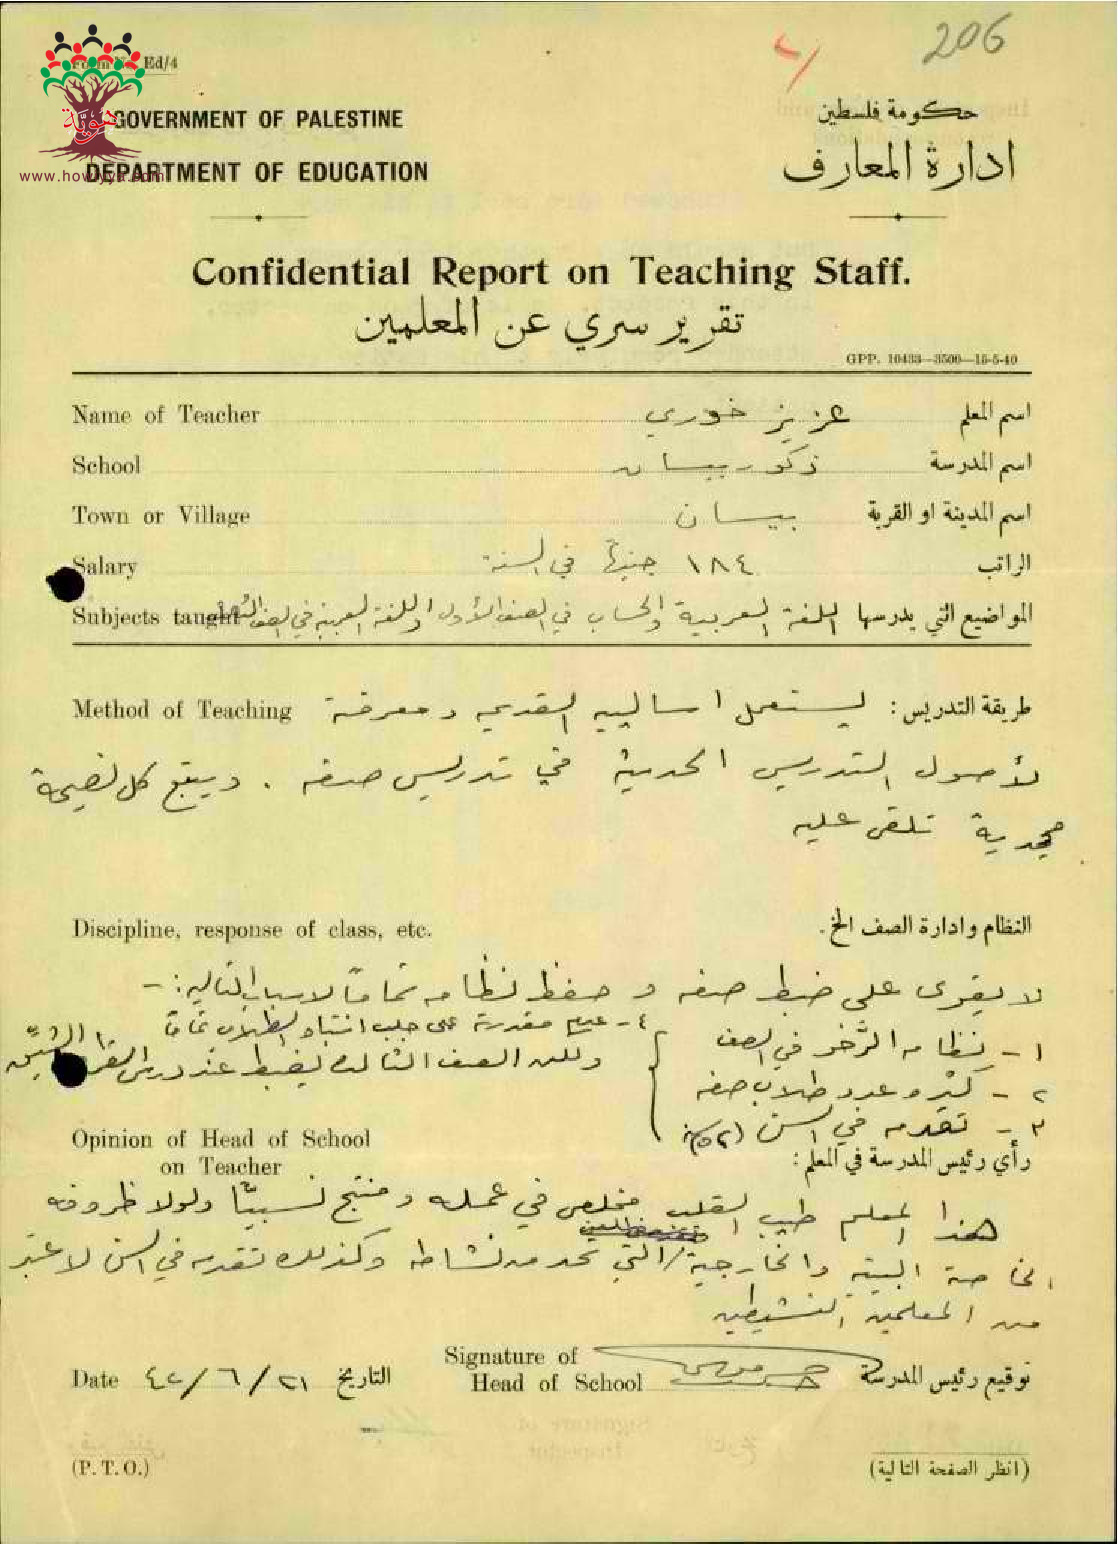 206
Form No. Ed/4
هويّة
www.howiyya.com
GOVERNMENT OF PALESTINE
DEPARTMENT OF EDUCATION
حكومة فلسطين
ادارة المعارف
Confidential Report on Teaching Staff.
تقرير سري عن المعلمين
GPP. 10433—3500—15-5-40
Name of Teacher عزيز خوري اسم المعلم
School ذكور بيسان اسم المدرسة
Town or Village بيسان اسم المدينة او القرية
Salary ١٨٤ جنيهاً في السنة الراتب
Subjects taught المواضيع التي يدرسها اللغة العربية والحساب في الصف الأول واللغة العربية في الصف
Method of Teaching طريقة التدريس: يستعمل اساليبه القديمة ومعرفته
لأصول التدريس الحديثة في تدريس صفه . ويتبع كل نصيحة
مجدية تلقى عليه
Discipline, response of class, etc. النظام وادارة الصف الخ.
لا يقوى على ضبط صفه و حفظ نظامه تماماً للاسباب التالية :-
١ - نظامه الرخو في الصف
٢ - كثرة عدد طلاب صفه
٣ - تقدمه في السن (٥٢)
٤ - عدم مقدرته على جلب انتباه الطلاب تماماً
ولكن الصف الثالث يضبط عند درس
Opinion of Head of School
on Teacher
رأي رئيس المدرسة في المعلم:
هذا المعلم طيب القلب مخلص في عمله ومنتج نسبيّاً ولولا ظروفه
الخاصة البيتية والخارجية التي تحد من نشاطه وكذلك تقدمه في السن لاعتبر
من المعلمين النشيطين
Signature of
Head of School توقيع رئيس المدرسة
Date ٢١/٦/٤٢ التاريخ
(P. T. O.)
(انظر الصفحة التالية)